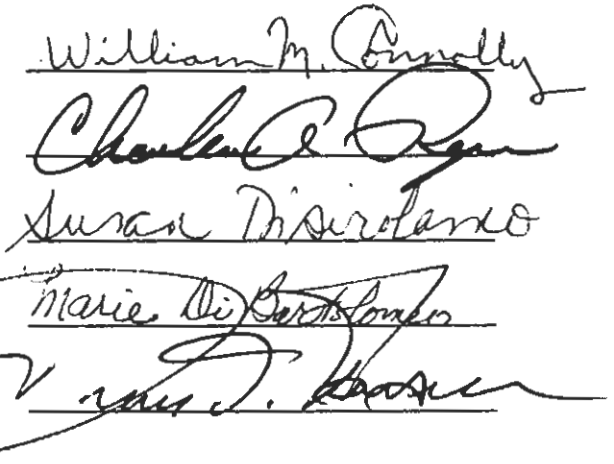 William M. Connolly
Charles A. Ryan
Susan DiGirolamo
Marie DiBartolomeo
J.